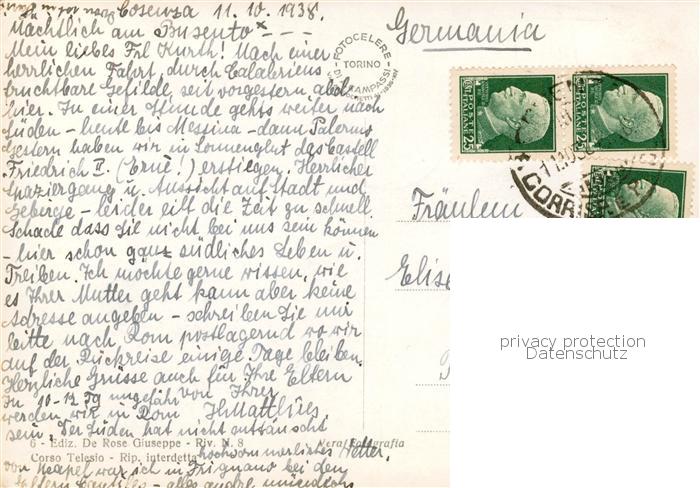 Cosenza 11.10.1938.
Nächtlich am Busento x - - -
Mein liebes Frl Kurth! Nach einer
herrlichen Fahrt durch Calabriens
fruchtbare Gefilde seit vorgestern abds
hier. In einer Stunde gehts weiter nach
Süden - heute bis Messina - dann Palermo
Gestern haben wir in Sonnenglut das Castell
Friedrich II. erstiegen. Herrlicher
Spaziergang u. Aussicht auf Stadt und
Gebirge - leider eilt die Zeit zu schnell
Schade dass Sie nicht bei uns sein können
- hier schon ganz südliches Leben u.
Treiben. Ich möchte gerne wissen, wie
es Ihrer Mutter geht kann aber keine
Adresse angeben - schreiben Sie mir
bitte nach Rom postlagernd wo wir
auf der Rückreise einige Tage bleiben.
Herzliche Grüsse auch für Ihre Eltern
In 10-12 ungefähr von Ihrer
werden wir in Rom
sein. Der Süden hat nicht enttäuscht
hochsommerliches Wetter.
von Neapel war ich in Frignano bei den
Germania
FOTOCELERE
TORINO
DI A. CAMPASSI
POSTE ITALIANE
CENT 25
Fräulein
privacy protection
Datenschutz
6 - Ediz. De Rose Giuseppe - Riv. N. 8
Corso Telesio - Rip. interdetta
Vera Fotografia